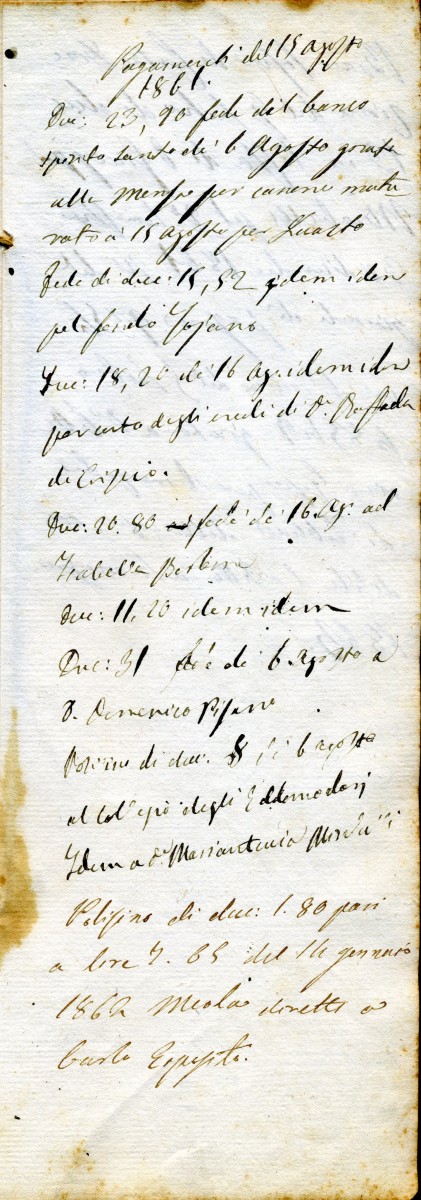 Pagamenti del 15 Agosto
1861.
Duc: 23, 90 fede del banco
Spirito Santo de' 6 Agosto
alla Mensa per canone matu-
rato a 15 agosto per Quarto
Fede di duc: 15, 52 idem idem
pel fondo Tojano
Duc: 18, 20 de' 16 Ag. idem idem
per conto degli eredi di Da. Raffaela
de Crispio.
Duc: 20. 80 fede de' 16. Ag. ad
Isabella
Duc: 11, 20 idem idem
Duc: 31 fede de' 6. Agosto a
D. Domenico Pisano
Polisino di duc. 8 de' 6 agosto
al Collegio degli Eddomadarj
Idem a Da. Mariantonia
Polisino di duc: 1. 80 pari
a lire 7. 65 del 14 gennaio
1862 diretti a
Carlo Esposito.